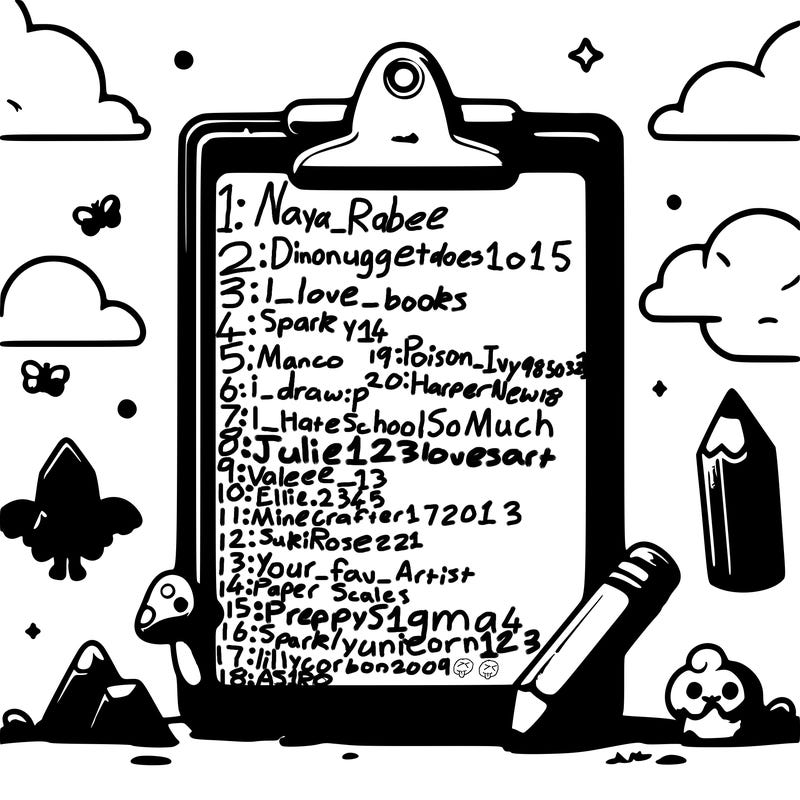 1: Naya_Rabee
2: Dinonuggetdoes1o15
3: I_love_books
4: Sparky14
5: Manco 19: Poison_Ivy985032
6: i_draw:p 20: HarperNew18
7: I_HateSchoolSoMuch
8: Julie123lovesart
9: Valeee_13
10: Ellie.2345
11: Minecrafter172013
12: SukiRose221
13: Your_fav_Artist
14: Paper Scales
15: PreppyS1gma4
16: Spark/yunicorn123
17: lillycorbon2009😝😝
18: AS1RO